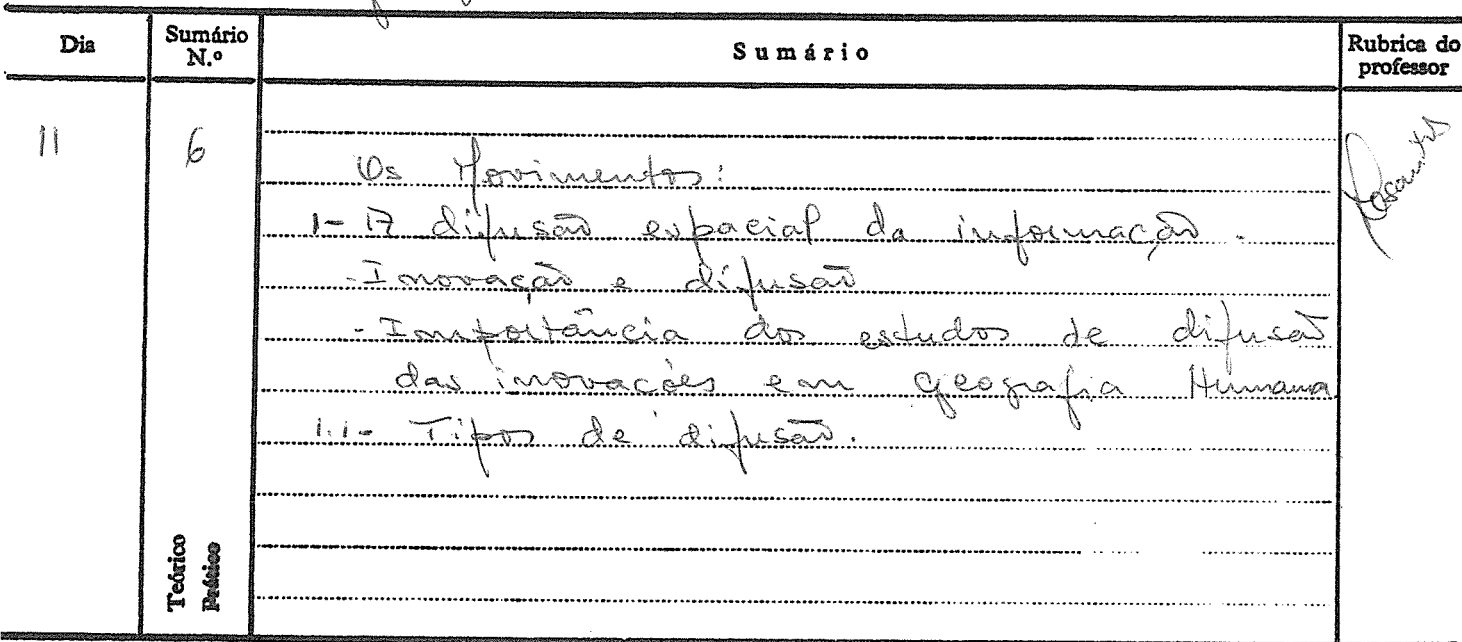 Dia
Sumário N.º
Sumário
Rubrica do professor
11
6
Os Movimentos:
1- A difusão espacial da informação.
- Inovação e difusão
- Importância dos estudos de difusão
das inovações em Geografia Humana
1.1- Tipos de difusão.
Teórico
Prático